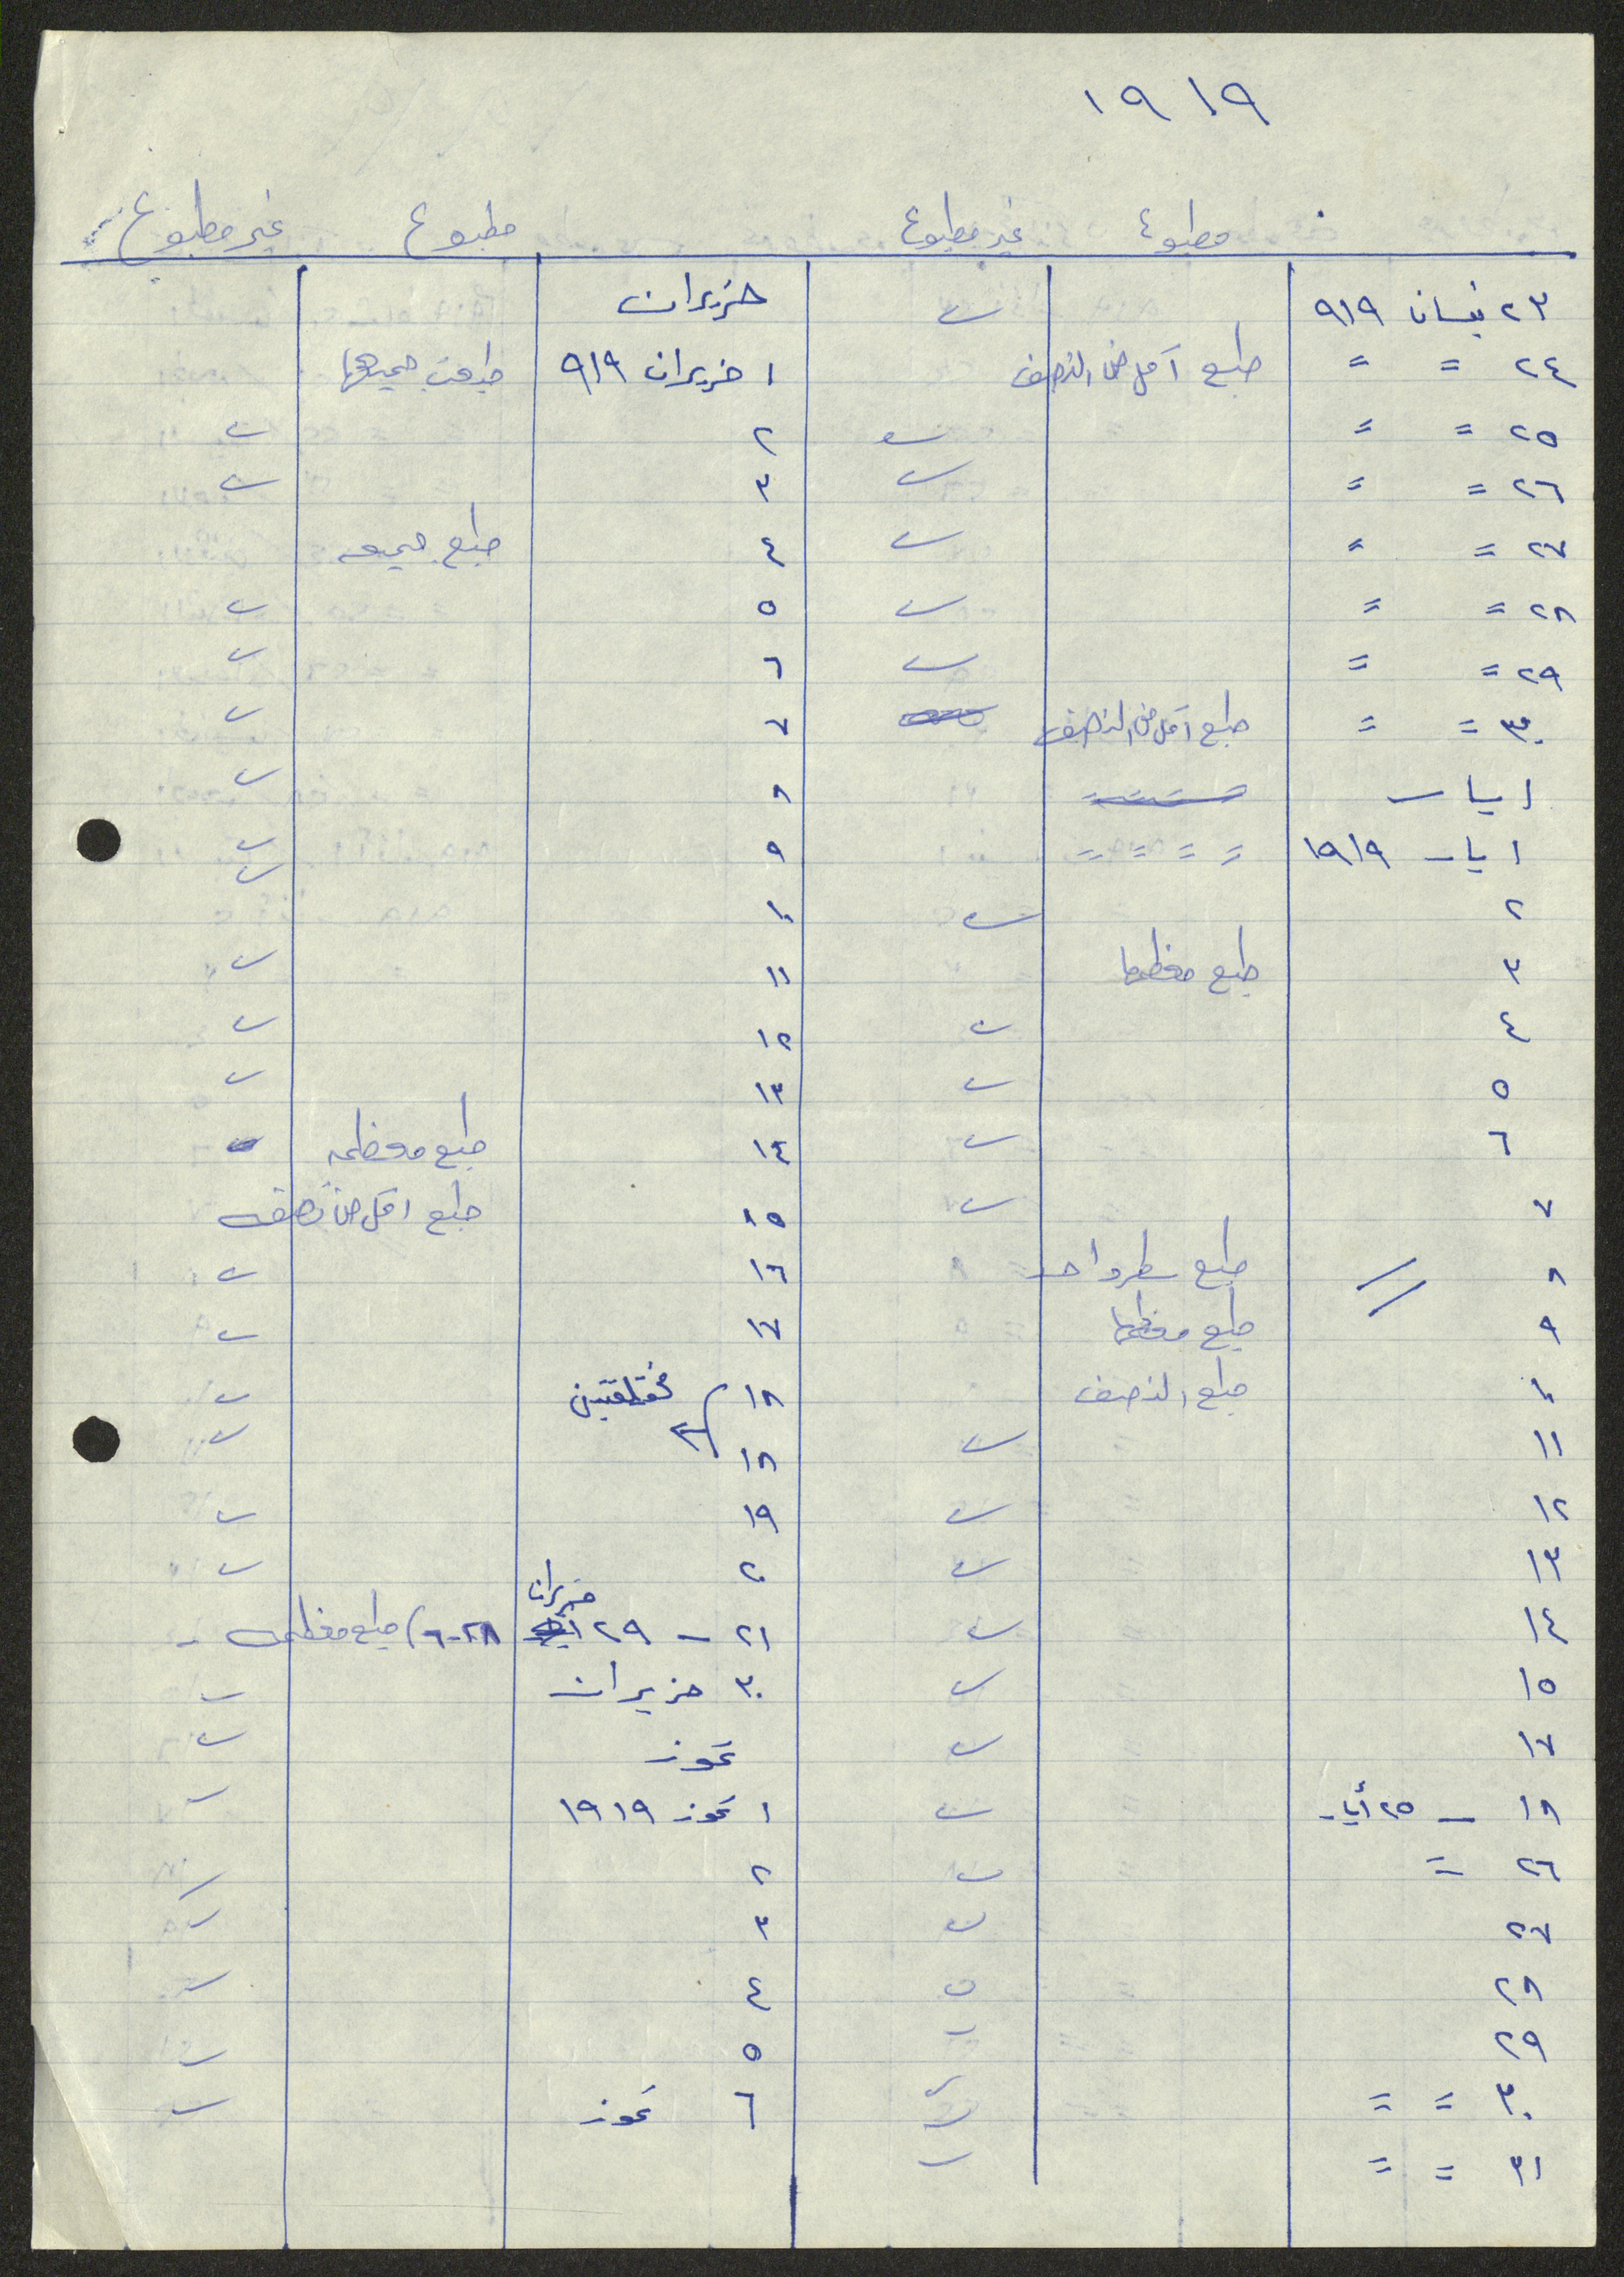 ١٩١٩
مطبوع غير مطبوع مطبوع غير مطبوع
٢٣ نيسان ٩١٩
٢٤ = = طبع أقل من النصف
٢٥ = =
٢٦ = =
٢٧ = =
٢٨ = =
٢٩ = =
٣٠ = = طبع اقل من النصف
ايار
١ ايار ١٩١٩ = = = =
٢
٣ طبع معظمها
٤
٥
٦
٧
٨ طبع سطر واحد
٩ طبع معظمها
١٠ طبع النصف
١١
١٢
١٣
١٤
١٥
١٧
١٨ - ٢٥ أيار
٢٦ =
٢٧
٢٨
٢٩
٣٠ = =
٣١ = =
حزيران
١ حزيران ٩١٩ طبعت جميعها
٢
٣
٤ طبع جميعه
٥
٦
٧
٨
٩
١٠
١١
١٢
١٣
١٤ طبع معظمه
١٥ طبع اقل من نصفه
١٦
١٧
١٨ مختلفتين
١٨
١٩
٢٠
٢١ - ٢٩ حزيران (٢٨-٦) طبع معظمه -
٣٠ حزيران
تموز
١ تموز ١٩١٩
٢
٣
٤
٥
٦ تموز